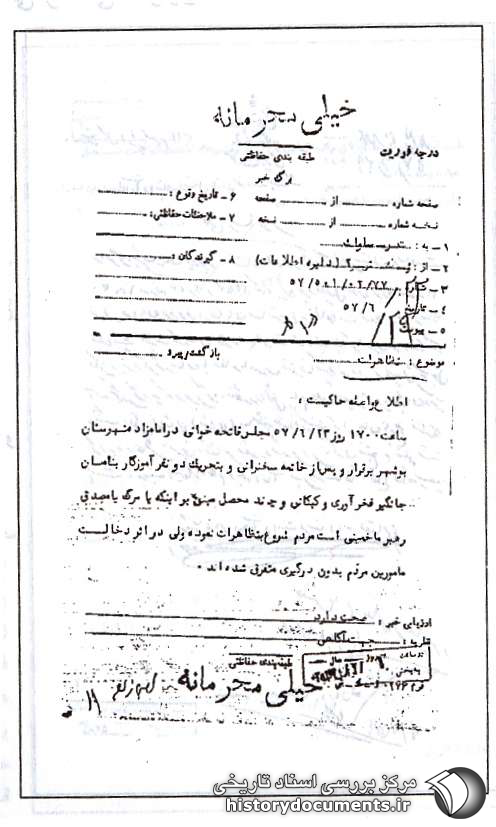 خیلی محرمانه
درجه فوریت
طبقه بندی حفاظتی
برگ خبر
صفحه شماره از صفحه
نسخه شماره از نسخه
۶ - تاریخ وقوع :
۷ - ملاحظات حفاظتی:
۱ - به :
۲ - از : (دایره اطلاعات)
۸ - گیرندگان :
۳ - شماره
۴ - تاریخ ۵۷/۶/
۵ - پیوست
موضوع : تظاهرات
بازگشت پیرو
اطلاع واصله حاکیست :
ساعت ۱۷۰۰ روز ۵۷/۶/۲۳ مجلس فاتحه خوانی در امامزاد شهرستان
بوشهر برقرار و پس از خاتمه سخنرانی و بتحریک دو نفر آموزگار بنامان
جانگیر فخرآوری و کبکانی و چند محصل مبنی بر اینکه یا مرگ یا مصدقی
رهبر ما خمینی است مردم شروع بتظاهرات نموده ولی در اثر دخالت
مامورین مردم بدون درگیری متفرق شده اند .
ارزیابی خبر : صحت دارد
نظریه : جهت آگاهی
طبقه بندی حفاظتی
خیلی محرمانه
مرکز بررسی اسناد تاریخی
historydocuments.ir